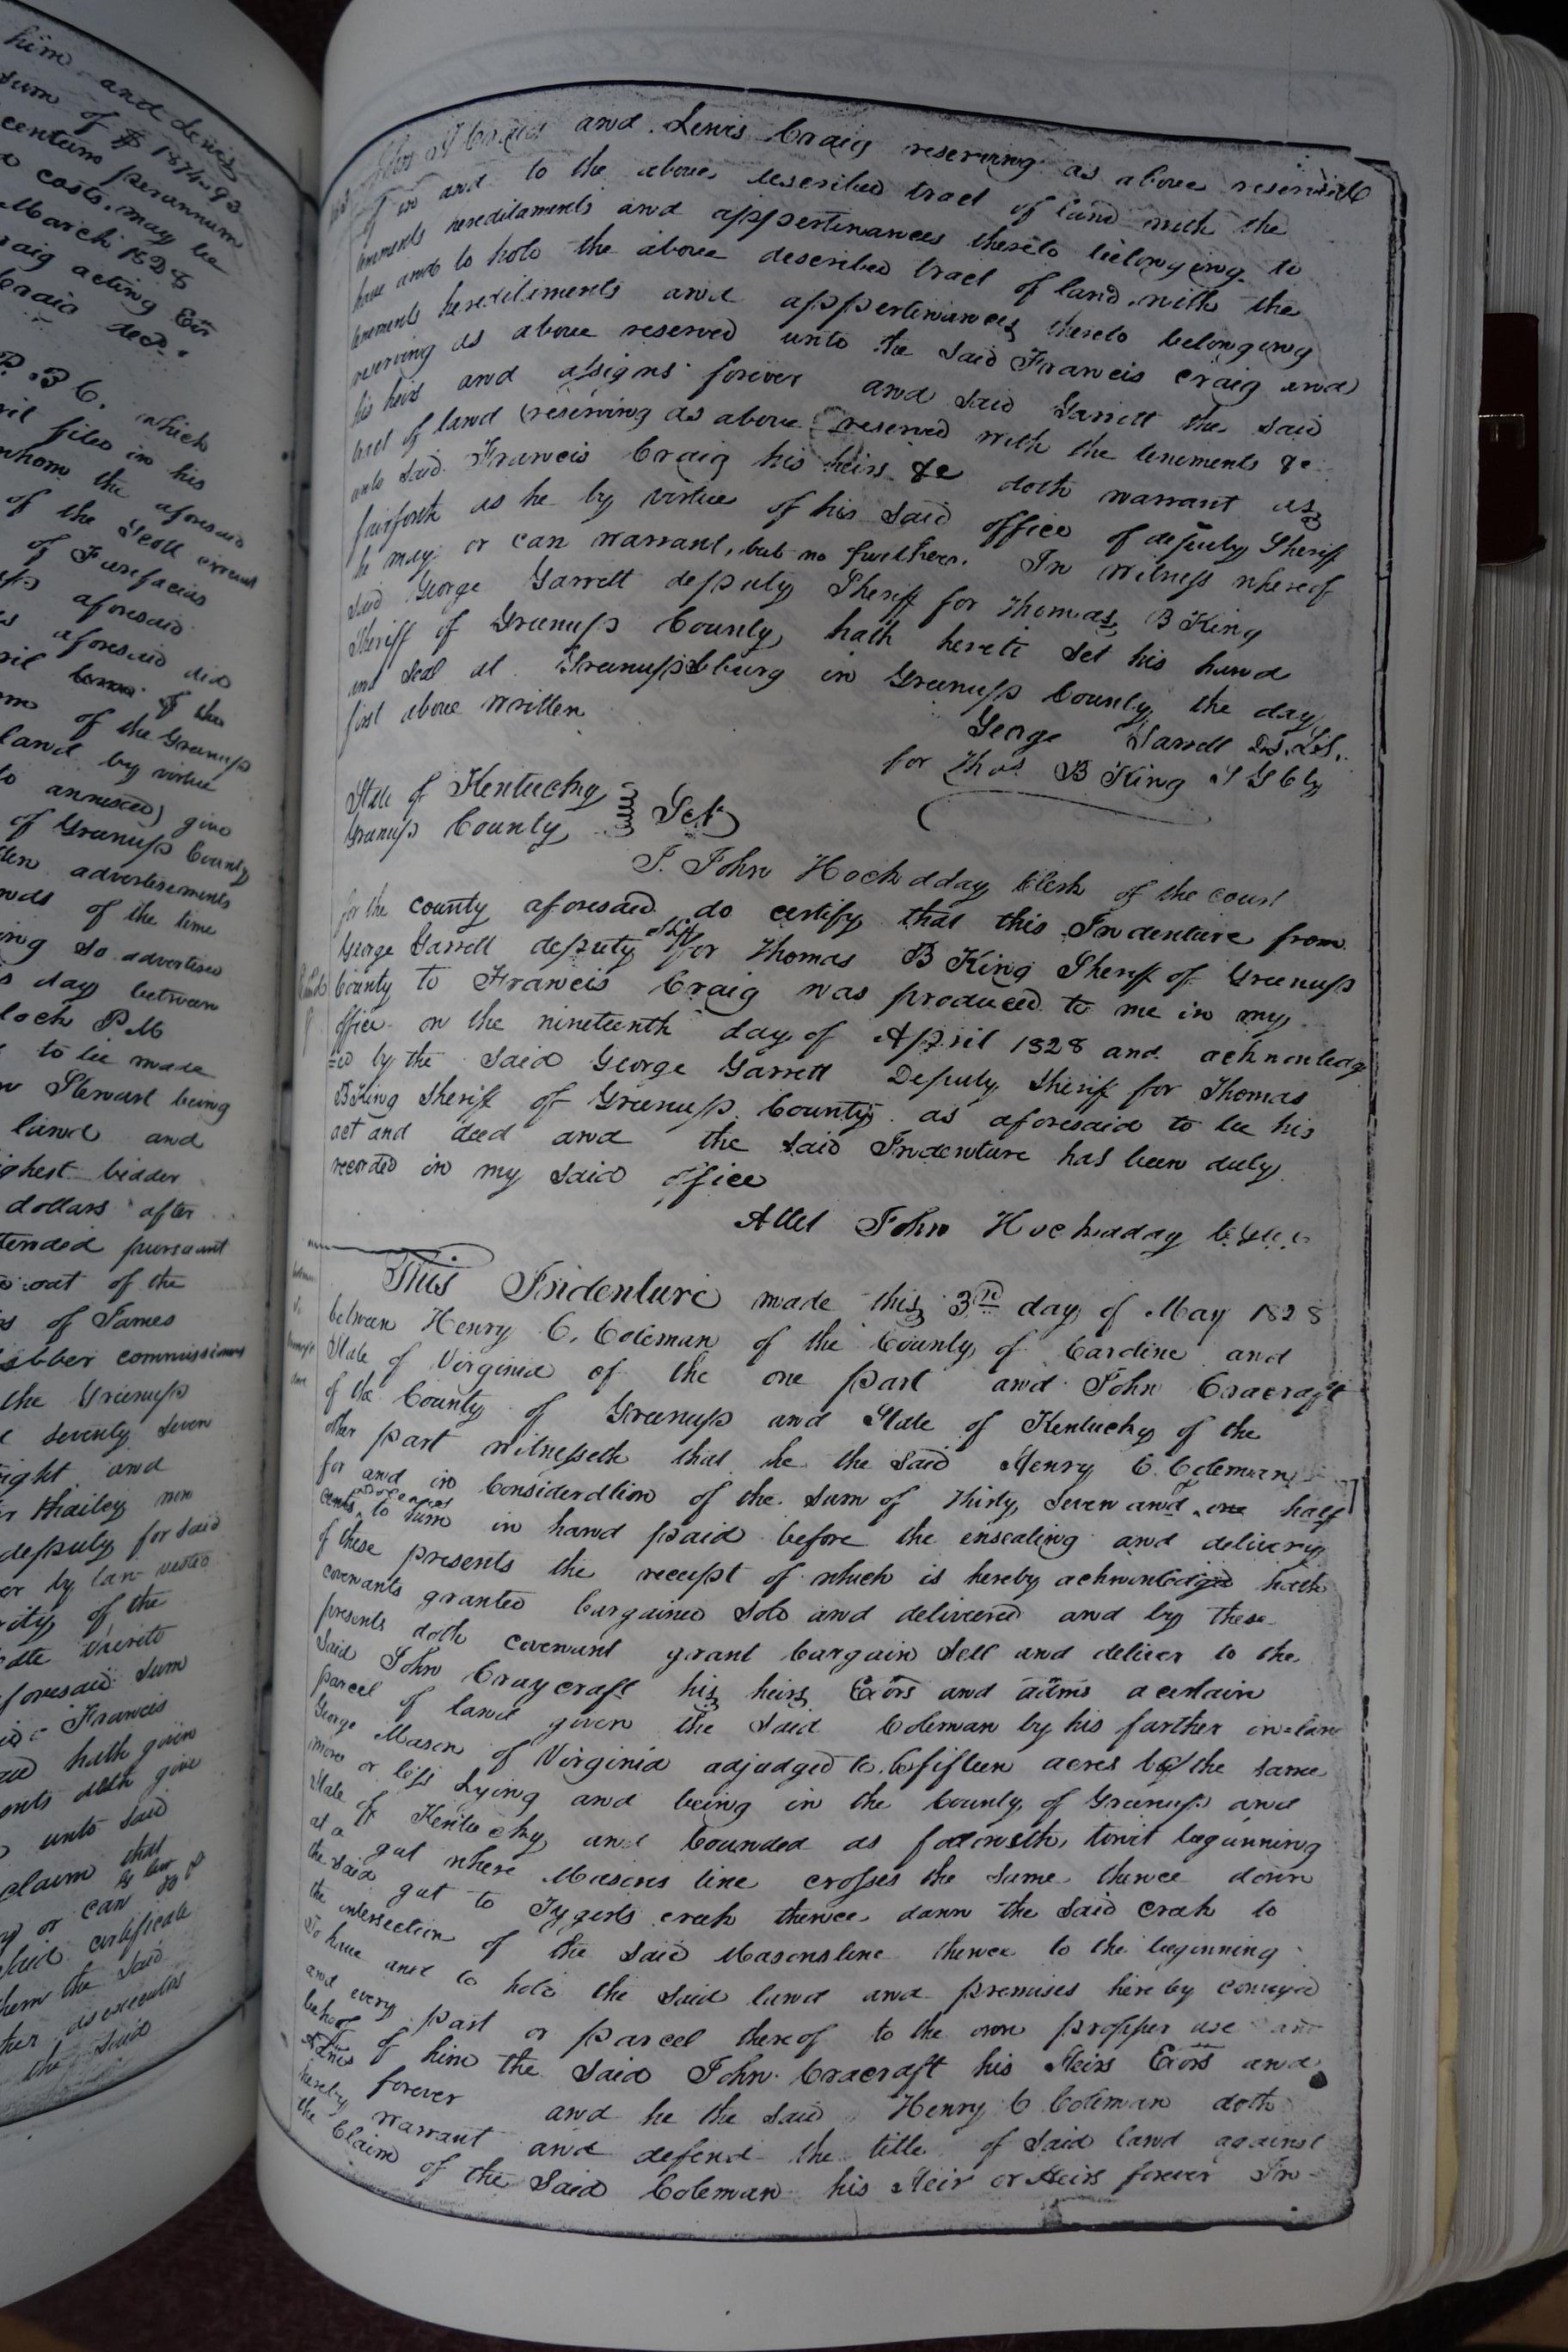 him and Lewis
sum of $ 1874.93
centum perannum
costs. may be
March 1828
Craig acting Exr
Craig decd.
P. B C. which
filed in his
whom the aforesaid
of the Scott circuit
of Firefacias
aforesaid
aforesaid did
of the
of the Greenup
land by virtue
to annexed) give
of Greenup County
advertisements
of the time
so advertised
day between
lock P M
to be made
Stewart being
land and
highest bidder
dollars after
tended pursuant
out of the
of James
commissioners
the Greenup
seventy seven
right and
deputy for said
by law vested
rity of the
aforesaid sum
Francis
hath given
doth give
unto said
claim that
or can do
said certificate
them the said
as executor
the said
and Lewis Craig reserving as above reserved
of in and to the above described tract of land with the
tenements hereditaments and appertenances thereto belonging to
have and to hold the above described tract of land with the
tenements hereditements and appertenances thereto belonging
reserving as above reserved unto the said Francis Craig and
his heirs and assigns forever and said Garrett the said
tract of land (reserving as above reserved with the tenements &c
unto said Francis Craig his heirs &c doth warrant as
fairforth as he by virtue of his said office of deputy Sheriff
he may or can warrant, but no further. In witness whereof
said George Garrett deputy Sheriff for Thomas B King
Sheriff of Greenup County hath hereto set his hand
and seal at Greenupsburg in Greenup County the day
first above written
George Garrett D.S. L.S.
for Thos. B King S G Cty
State of Kentucky
Greenup County Sct
I. John Hockadday Clerk of the court
for the county aforesaid do certify that this Indenture from
George Garrett deputy Shff for Thomas B King Sheriff of Greenup
County to Francis Craig was produced to me in my
office on the nineteenth day of April 1828 and acknowledg
=ed by the said George Garrett Deputy Sheriff for Thomas
B King Sheriff of Greenup County as aforesaid to be his
act and deed and the said Indenture has been duly
recorded in my said office
Attest John Hockaday
This Indenture made this 3rd day of May 1828
between Henry C. Coleman of the County of Caroline and
State of Virginia of the one part and John Cracraft
of the County of Greenup and State of Kentucky of the
other part witnesseth that he the said Henry C. Coleman
for and in Consideration of the sum of thirty seven and one half
cents to him in hand paid before the ensealing and delivery
of these presents the receipt of which is hereby acknowledged hath
covenants granted bargained sold and delivered and by these
presents doth covenant grant bargain sell and deliver to the
said John Craycraft his heirs Exors and adms a certain
parcel of land given the said Coleman by his farther in=law
George Mason of Virginia adjudged to fifteen acres be the same
more or less Lying and being in the County of Greenup and
State of Kentucky and bounded as followeth, towit beginning
at a gut where Masons line crosses the same thence down
the said gut to Tygerts creek thence down the said creek to
the intersection of the said Masons line thence to the beginning
To have and to hold the said land and premises hereby conveyed
and every part or parcel thereof to the own propper use and
behoof of him the said John Cracraft his Heirs Exors and
Adms forever and he the said Henry C Coleman doth
hereby warrant and defend the title of said land against
the Claim of the said Coleman his Heir or Heirs forever In